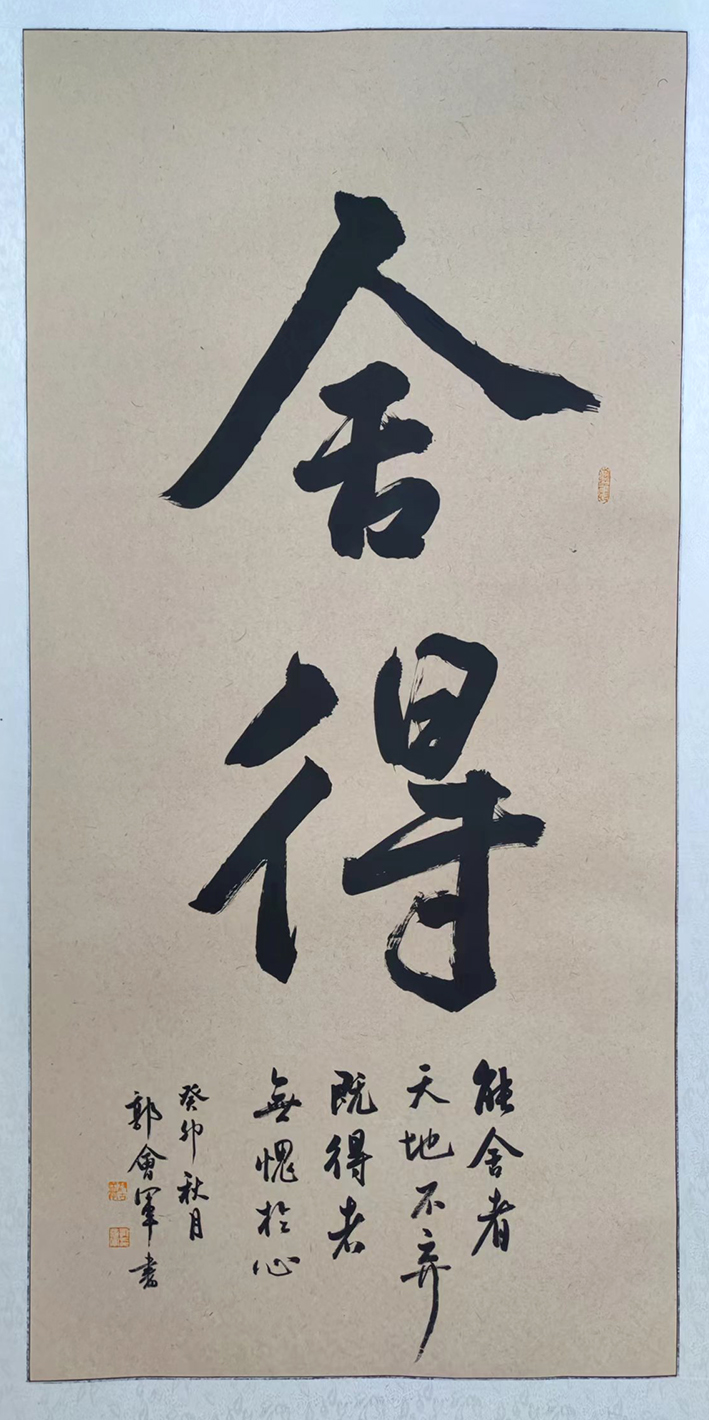 舍得
能舍者
天地不弃
既得者
無愧於心
癸卯秋月
郭會軍書